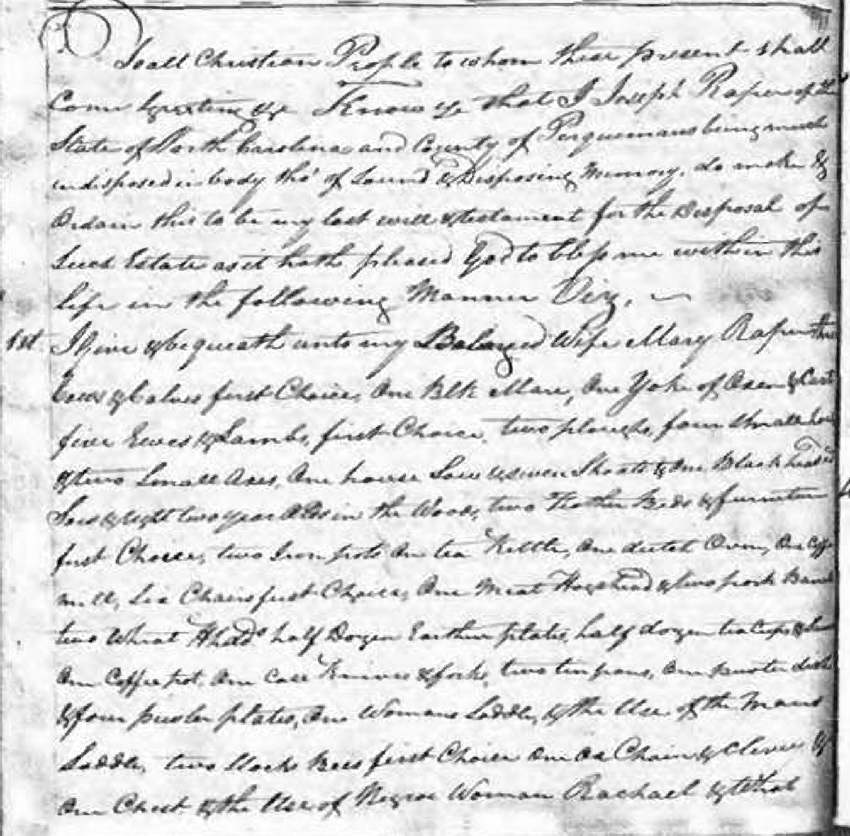 To all Christian People to whom these present shall
Come Greeting &c Know ye that I Joseph Raper of the
State of North Carolina and County of Perquimans being much
indisposed in body tho' of Sound & Disposing Memory, do make &
Ordain this to be my last will & testament for the Disposal of
Such Estate as it hath pleased God to bless me with in this
life in the following Manner Viz,
1st I Give & bequeath unto my Beloved Wife Mary Raper three
Cows & Calves first Choice, One Blk Mare, One Yoke of Oxen & Cart
five Ewes & Lambs, first Choice, two ploughs, four Small
& two Small Axes, One house Sow & seven Shoats & One Black headed
Sow & eight two year Olds in the Woods, two Feather Beds & furniture
first Choice, two Iron pots One tea Kettle, One dutch Oven, One Coff
mill, Six Chairs first Choice, One Meat Hogshead & two pork Barrels
two Wheat Hhds half Dozen Earthen plates, half dozen tea Cups &
One Coffee pot, One Case Knives & forks, two tin pans, One pewter dish
& four pewter plates, One Womans Saddle, & the Use of the Mans
Saddle, two Stocks Bees first Choice One Ox Chain & Clevis &
One Chest & the Use of Negroe Woman Rachael & that